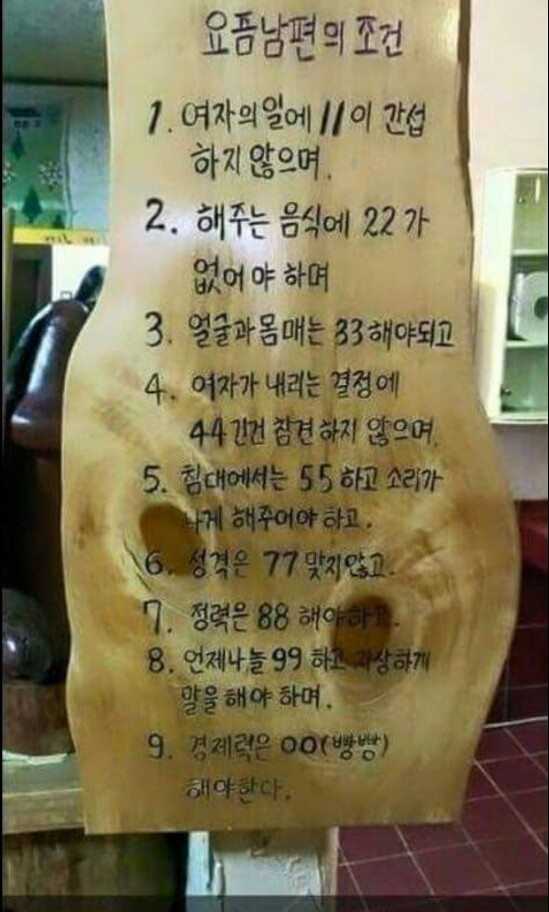 요즘남편의 조건
1. 여자의일에 11이 간섭
하지 않으며.
2. 해주는 음식에 22가
없어야 하며
3. 얼굴과몸매는 33해야되고
4. 여자가 내리는 결정에
44건건 참견하지 않으며.
5. 침대에서는 55하고 소리가
나게 해주어야 하고.
6. 성격은 77맞지않고.
7. 정력은 88 해야하고.
8. 언제나늘 99 하고 자상하게
말을 해야 하며.
9. 경제력은 00(빵빵)
해야한다.